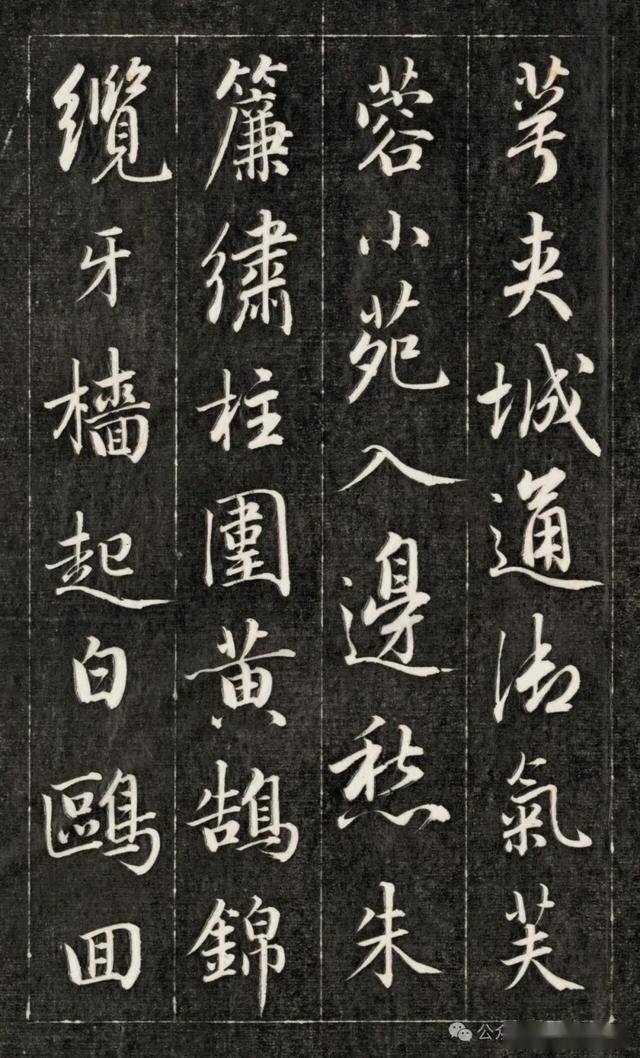 萼夾城通御氣芙
蓉小苑入邊愁朱
簾繡柱圍黃鵠錦
纜牙檣起白鷗回
公众